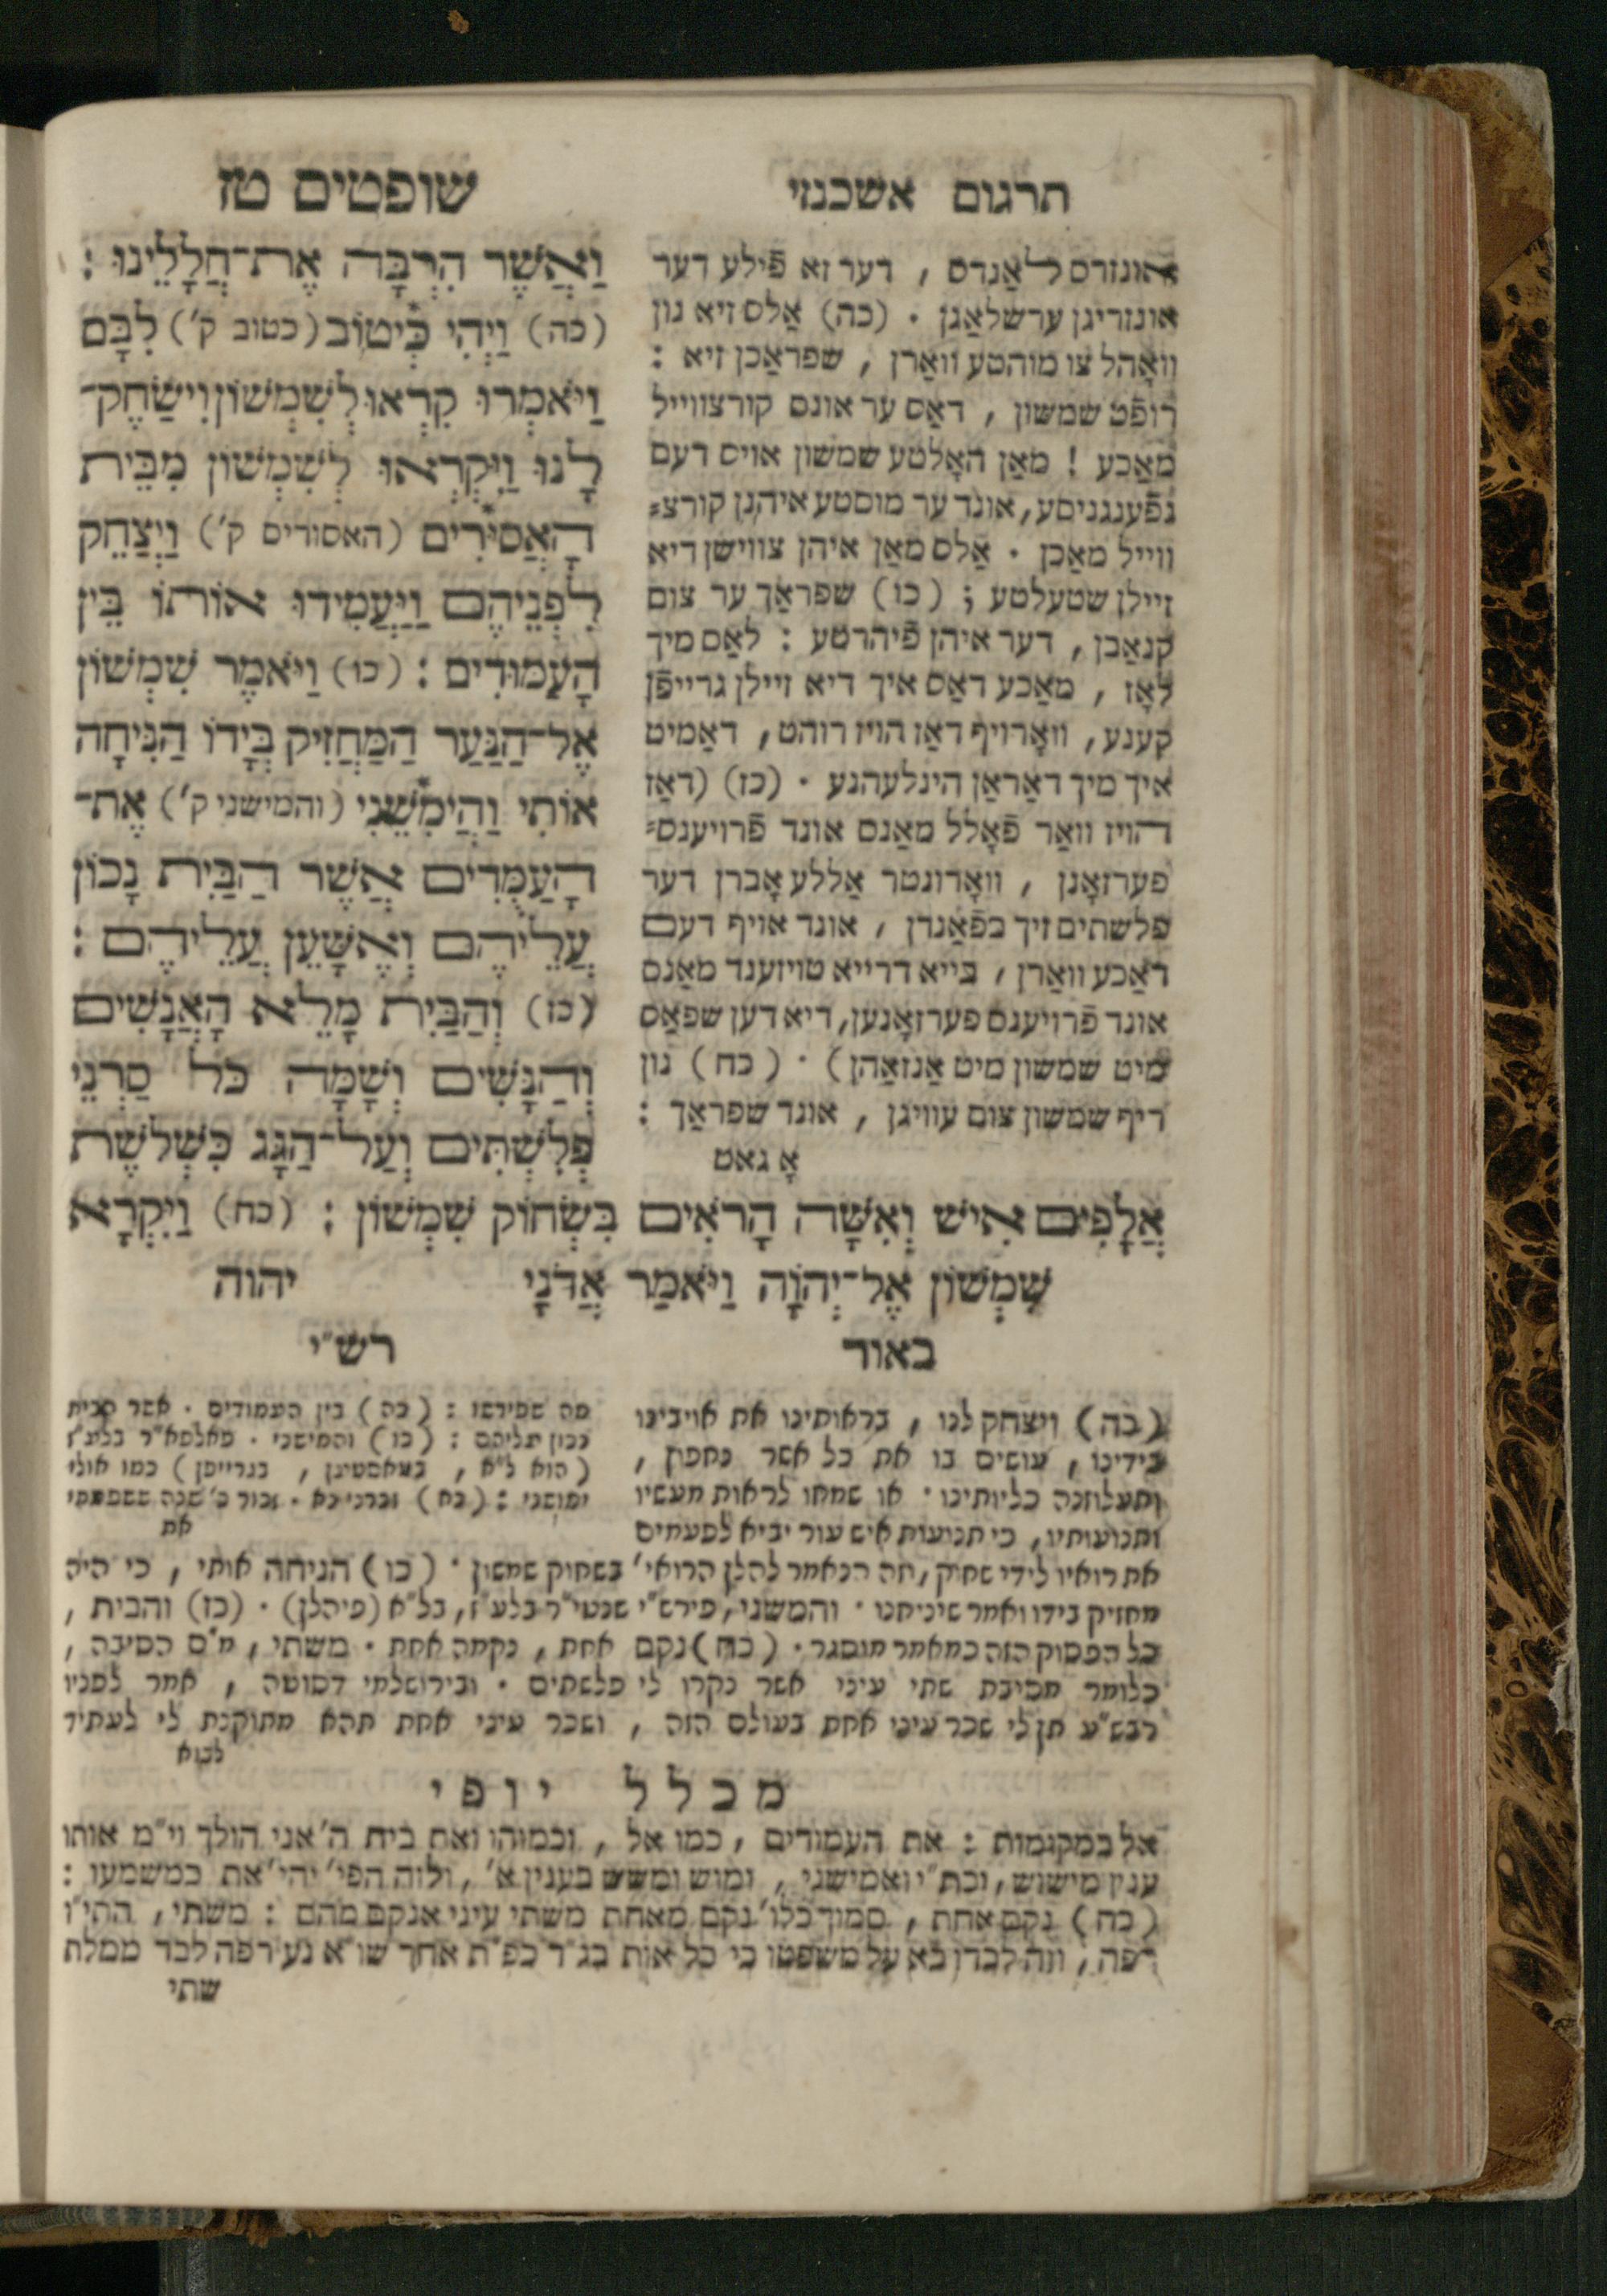 תרגום אשכנזי
אונזרס לאַנדס , דער זא פֿילע דער
אונזריגן ערשלאַגן . (כה) אַלס זיא נון
וואָהל צו מוהטע וואַרן , שפראַכן זיא :
רופֿט שמשון , דאַס ער אונס קורצווייל
מאַכע ! מאַן האָלטע שמשון אויס דעם
געפֿענגניסע, אונד ער מוסטע איהנן קורצ⸗
ווייל מאַכן . אַלס מאַן איהן צווישן דיא
זיילן שטעלטע ; (כו) שפראַך ער צום
קנאַבן , דער איהן פֿיהרטע : לאַס מיך
לאָז , מאַכע דאַס איך דיא זיילן גרייפֿן
קענע, וואָרויף דאַז הויז רוהט, דאַמיט
איך מיך דאַראַן הינלעהנע . (כז) (דאַז
הויז וואַר פֿאָלל מאַנס אונד פֿרויענס⸗
פערזאָנן , וואָרונטר אַללע אָברן דער
פלשתים זיך בפֿאַנדן , אונד אויף דעם
דאַכע וואַרן , בייא דרייא טויזענד מאַנס
אונד פֿרויענס פערזאָנען, דיא דען שפאַס
מיט שמשון מיט אַנזאַהן) . (כח) נון
ריף שמשון צום עוויגן , אונד שפראַך :
אָ גאט
שופטים טז
וַאֲשֶׁר הִרְבָּה אֶת־חֲלָלֵינוּ :
(כה) וַיְהִי כְּיטוֹב (כטוב ק') לִבָּם
וַיֹּאמְרוּ קִרְאוּ לְשִׁמְשׁוֹן וִישַׂחֶק־
לָנוּ וַיִּקְרְאוּ לְשִׁמְשׁוֹן מִבֵּית
הָאֲסיּרִים (האסורים ק') וַיְצַחֵק
לִפְנֵיהֶם וַיַּעֲמִידוּ אוֹתוֹ בֵּין
הָעַמּוּדִים : (כו) וַיֹּאמֶר שִׁמְשׁוֹן
אֶל־הַנַּעַר הַמַּחֲזִיק בְּיָדוֹ הַנִּיחָה
אוֹתִי וַהֲיְמִשֵׁנִי (והמישני ק') אֶת־
הָעַמֻּדִים אֲשֶׁר הַבַּיִת נָכוֹן
עֲלֵיהֶם וְאֶשָּׁעֵן עֲלֵיהֶם :
(כז) וְהַבַּיִת מָלֵא הָאֲנָשִׁים
וְהַנָּשִׁים וְשָׁמָּה כֹּל סַרְנֵי
פְּלִשְׁתִּים וְעַל־הַגָּג כִּשְׁלֹשֶׁת
אֲלָפִים אִישׁ וְאִשָּׁה הָרֹאִים בִּשְׂחוֹק שִׁמְשׁוֹן : (כח) וַיִּקְרָא
שִׁמְשׁוֹן אֶל־יְהוָֹה וַיֹּאמַר אֲדֹנָי יהוה
באור
(כה) ויצחק לנו , בראותינו את אויבינו
בידינו , עושים בו את כל אשר נחפוץ ,
ותעלוזנה כליותינו . או שמחו לראות מעשיו
ותנועותיו, כי תנועות איש עור יביא לפעמים
רש"י
מה שפירשו : (כה) בין העמודים . אשר הבית
נכון עליהם : (כו) והמישני .
(הוא ל"א , ) כמו אולי
ימושני : (כח) וזכרני נא . זכור כ' שנה ששפטתי
את
את רואיו לידי שחוק, וזה הנאמר להלן הרואי' בשחוק שמשון . (כו) הניחה אותי , כי היה
מחזיק בידו ואמר שיניחנו . והמשני, פירש"י בלע"ז, בל"א (פיהלן) . (כז) והבית ,
כל הפסוק הזה כמאמר מוסגר . (כח) נקם אחת , נקמה אחת . משתי , מ"ם הסיבה ,
כלומר מסיבת שתי עיני אשר נקרו לי פלשתים . ובירושלמי דסוטה , אמר לפניו
רבש"ע תן לי שכר עיני אחת בעולם הזה , ושכר עיני אחת תהא מתוקנת לי לעתיד
לבוא
מכלל יופי
אל במקומות : את העמודים , כמו אל , וכמוהו ואת בית ה' אני הולך וי"מ אותו
ענין מישוש, וכת"י ואמישני , ומוש ומשש בענין א', ולזה הפי' יהי' את כמשמעו :
(כח) נקם אחת , סמוך כלו' נקם מאחת משתי עיני אנקם מהם : משתי , התי"ו
רפה , וזה לבדו בא על משפטו כי כל אות בג"ד כפ"ת אחר שו"א נע רפה לבד ממלת
שתי